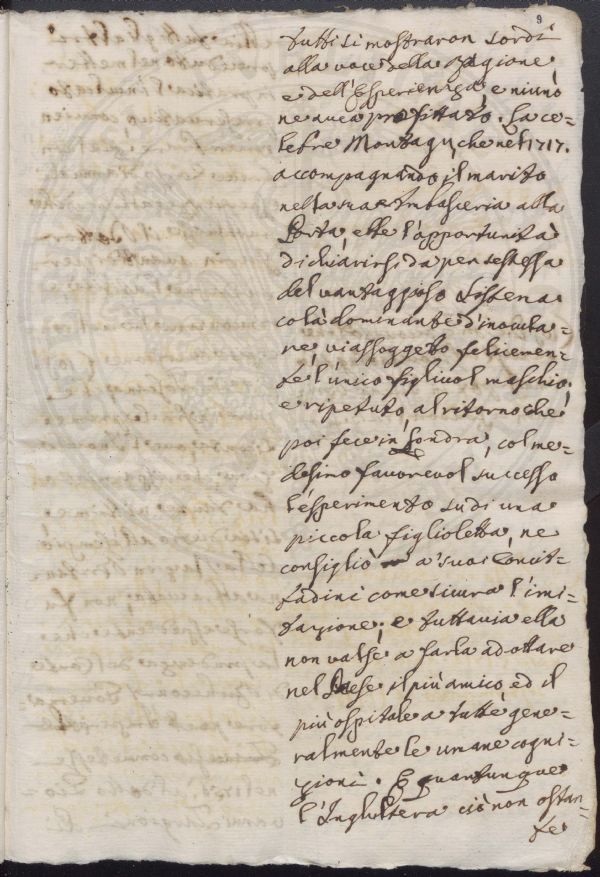 9
tutti si mostraron sordi
alla voce della Ragione
e dell'Esperienza, e niuno
ne avea profittato. La ce=
lebre Montagu, che nel 1717.
accompagnando il marito
nella sua Imbasceria alla
Porta, ebbe l'opportunità
di chiarirsi da per sestessa
del vantaggioso Sistema
colà dominante d'inocula=
re vi assoggettò felicemen=
te l'unico figlivol maschio,
e ripetuto, al ritorno che
poi fece in Londra, col me=
desimo favorevol successo
l'esperimento su di una
piccola figlioletta, ne
consigliò a' suoi Concit=
tadini come sicura l'imi=
tazione; e tuttavia ella
non valse a farla adottare
nel Paese il più amico, ed il
più ospitale a tutte gene=
ralmente le umane cogni=
zioni. E quantunque
l'Inghilterra ciò non ostan=
te